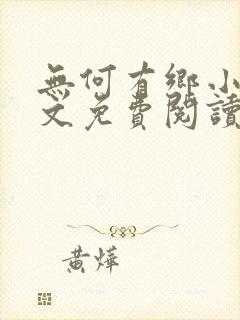 無何有鄉小
文免費閱讀
黃燁